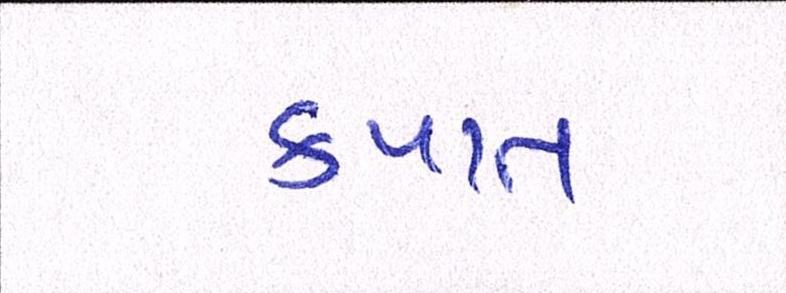 કપાત